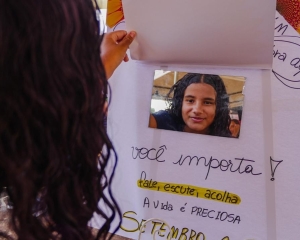 você importa!
Fale, escute, acolha
A VIDA É PRECIOSA
SETEMBRO